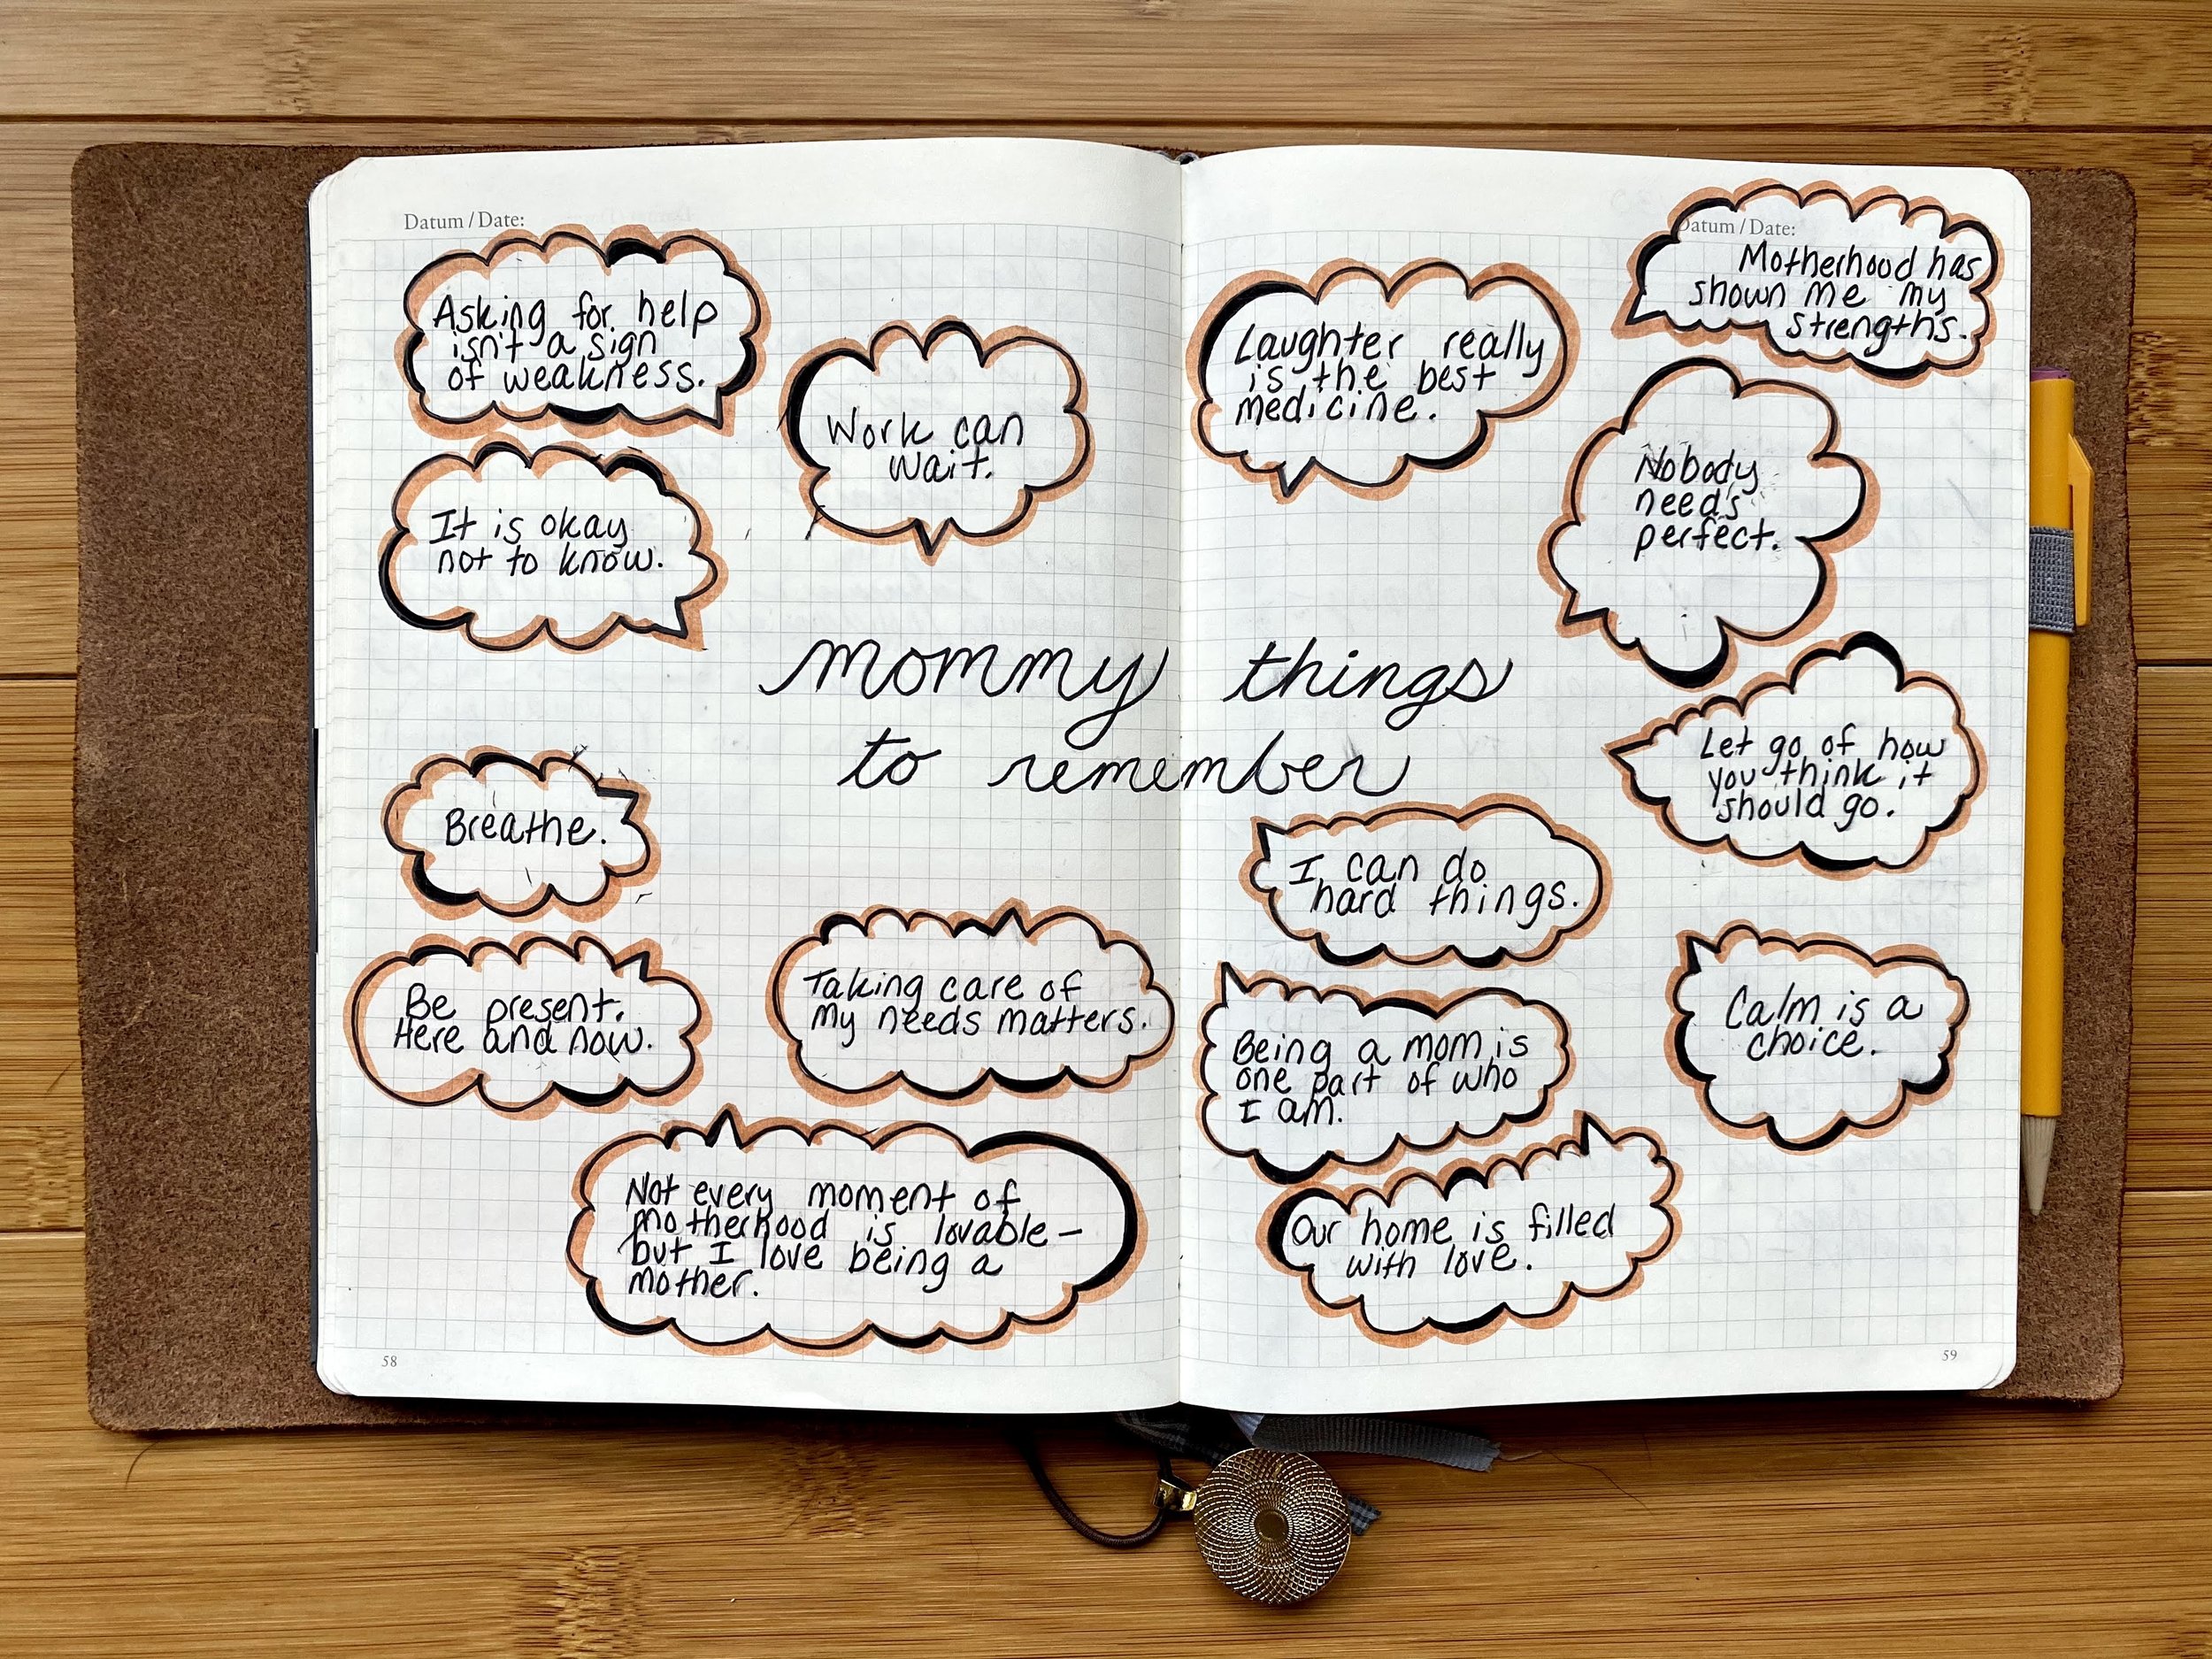 Datum / Date:
Asking for help
isn't a sign
of weakness.
Work can
wait.
It is okay
not to know.
Breathe.
Be present.
Here and now.
Taking care of
my needs matters.
Not every moment of
motherhood is lovable –
but I love being a
mother.
58
mommy things
to remember
Datum / Date:
Motherhood has
shown me my
strengths.
Laughter really
is the best
medicine.
Nobody
needs
perfect.
Let go of how
you think it
should go.
I can do
hard things.
Calm is a
choice.
Being a mom is
one part of who
I am.
Our home is filled
with love.
59